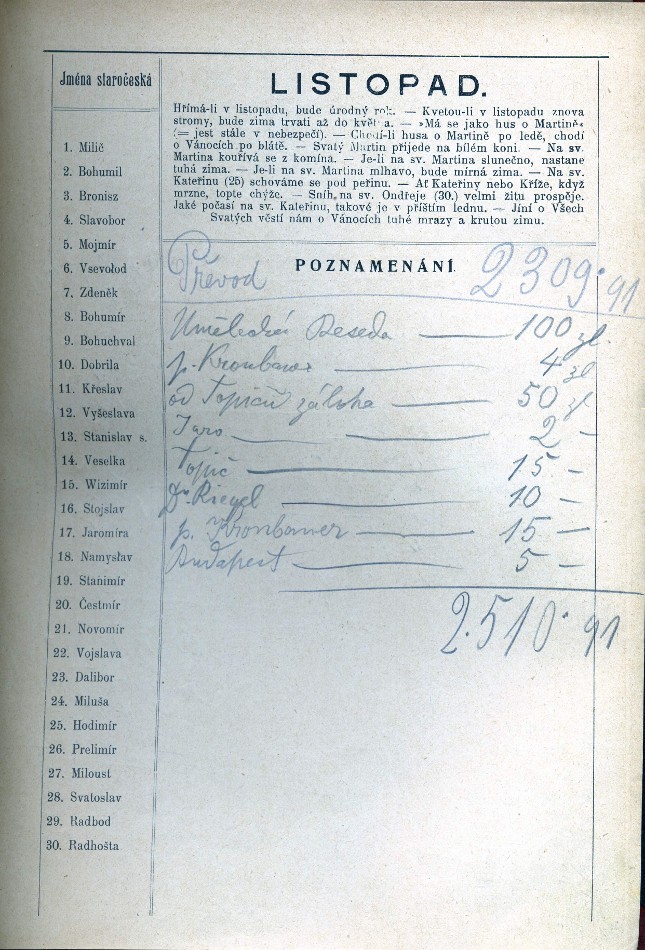 Jména staročeská
1. Milič
2. Bohumil
3. Bronisz
4. Slavobor
5. Mojmír
6. Vsevolod
7. Zdeněk
8. Bohumír
9. Bohuchval
10. Dobrila
11. Křeslav
12. Vyšeslava
13. Stanislav s.
14. Veselka
15. Wizimír
16. Stojslav
17. Jaromíra
18. Namyslav
19. Stanimír
20. Čestmír
21. Novomír
22. Vojslava
23. Dalibor
24. Miluša
25. Hodimír
26. Prelimír
27. Miloust
28. Svatoslav
29. Radbod
30. Radhošta
LISTOPAD.
Hřímá-li v listopadu, bude úrodný rok. — Kvetou-li v listopadu znova
stromy, bude zima trvati až do května. — »Má se jako hus o Martině«
(= jest stále v nebezpečí). — Chodí-li husa o Martině po ledě, chodí
o Vánocích po blátě. — Svatý Martin přijede na bílém koni. — Na sv.
Martina kouřívá se z komína. — Je-li na sv. Martina slunečno, nastane
tuhá zima. — Je-li na sv. Martina mlhavo, bude mírná zima. — Na sv.
Kateřinu (25) schováme se pod peřinu. — Ať Kateřiny nebo Kříže, když
mrzne, topte chýže. — Sníh na sv. Ondřeje (30.) velmi žitu prospěje.
Jaké počasí na sv. Kateřinu, takové je v příštím lednu. — Jíní o Všech
Svatých věstí nám o Vánocích tuhé mrazy a krutou zimu.
POZNAMENÁNÍ.
Převod 2309·91
Umělecká Beseda — 100 zl.
p. Kronbauer — 4 zl
od Topičů záloha — 50 zl
Jaro — — 2 –
Topič — 15 –
Dr. Riegel — 10 –
p. Kronbauer — 15 –
Budapest — 5 –
2.510·91